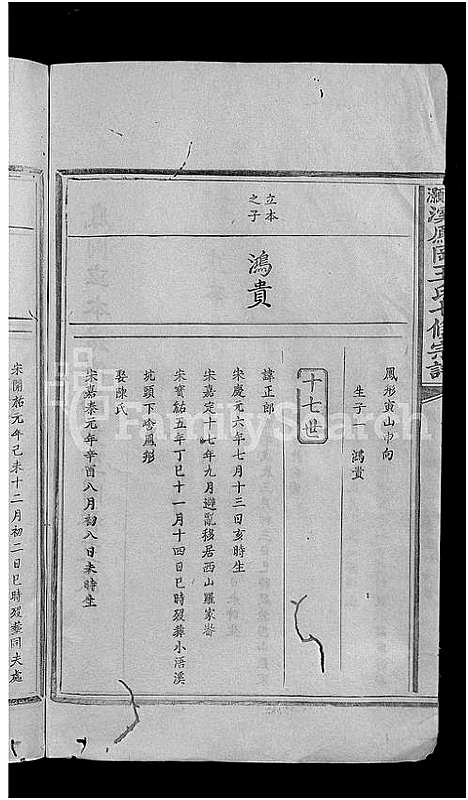 鳳形寅山申向
生子一 鴻貴
十七世
立本
之子
鴻貴
諱正郎
宋慶元六年七月十三日亥時生
宋嘉定十七年九月避亂移居西山羅家
宋寶祐五年丁巳十一月十四日巳時歿葬小浯溪
坑頭下唅鳳形
娶陳氏
宋嘉泰元年辛酉八月初八日未時生
宋開祐元年己未十二月初二日巳時歿葬同夫處
FamilySearch